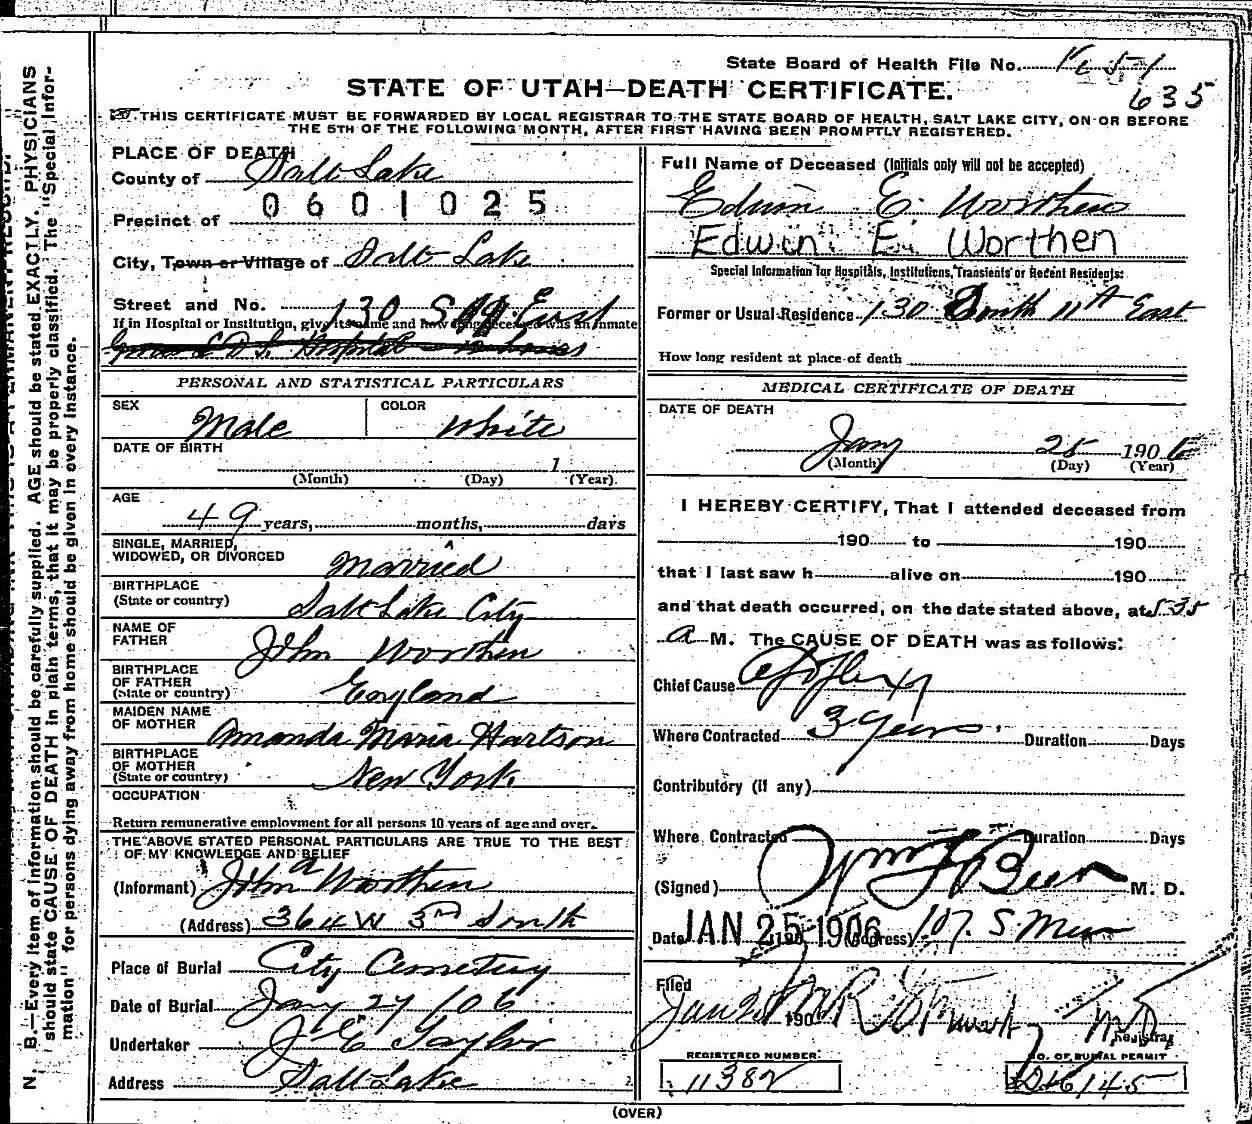 State Board of Health File No. 1651
635
STATE OF UTAH—DEATH CERTIFICATE.
THIS CERTIFICATE MUST BE FORWARDED BY LOCAL REGISTRAR TO THE STATE BOARD OF HEALTH, SALT LAKE CITY, ON OR BEFORE
THE 5TH OF THE FOLLOWING MONTH, AFTER FIRST HAVING BEEN PROMPTLY REGISTERED.
N. B.—Every item of information should be carefully supplied. AGE should be stated EXACTLY. PHYSICIANS
should state CAUSE OF DEATH in plain terms, that it may be properly classified. The "Special Infor-
mation" for persons dying away from home should be given in every instance.
PLACE OF DEATH
County of Salt Lake
0601025
Precinct of
City, Town or Village of Salt Lake
Street and No. 130 S 11 East
If in Hospital or Institution, give its name and how long deceased was an inmate
L D S Hospital
PERSONAL AND STATISTICAL PARTICULARS
SEX Male COLOR White
DATE OF BIRTH 1
(Month) (Day) (Year).
AGE
49 years, months, days
SINGLE, MARRIED,
WIDOWED, OR DIVORCED Married
BIRTHPLACE
(State or country) Salt Lake City
NAME OF
FATHER John Worthen
BIRTHPLACE
OF FATHER
(State or country) England
MAIDEN NAME
OF MOTHER Amanda Maria Hartson
BIRTHPLACE
OF MOTHER
(State or country) New York
OCCUPATION
Return remunerative employment for all persons 10 years of age and over.
THE ABOVE STATED PERSONAL PARTICULARS ARE TRUE TO THE BEST
OF MY KNOWLEDGE AND BELIEF
(Informant) John a Worthen
(Address) 364 W 3rd South
Place of Burial City Cemetery
Date of Burial Jany 27/06
Undertaker J E Taylor
Address Salt Lake
Full Name of Deceased (Initials only will not be accepted)
Edwin E. Worthen
Edwin E. Worthen
Special Information for Hospitals, Institutions, Transients or Recent Residents:
Former or Usual Residence 130 South 11th East
How long resident at place of death
MEDICAL CERTIFICATE OF DEATH
DATE OF DEATH
Jany 25 1906
(Month) (Day) (Year)
I HEREBY CERTIFY, That I attended deceased from
190 to 190
that I last saw h alive on 190
and that death occurred, on the date stated above, at 5.35
a M. The CAUSE OF DEATH was as follows:
Chief Cause Apoplexy
Where Contracted 3 Years. Duration Days
Contributory (if any)
Where Contracted Duration Days
(Signed) Wm F Beer M. D.
Date JAN 25 1906 190 (Address) 107. S Main
Filed
Jan 190 M R Stewart M D
Registrar
REGISTERED NUMBER NO. OF BURIAL PERMIT
11382 D16145
(OVER)